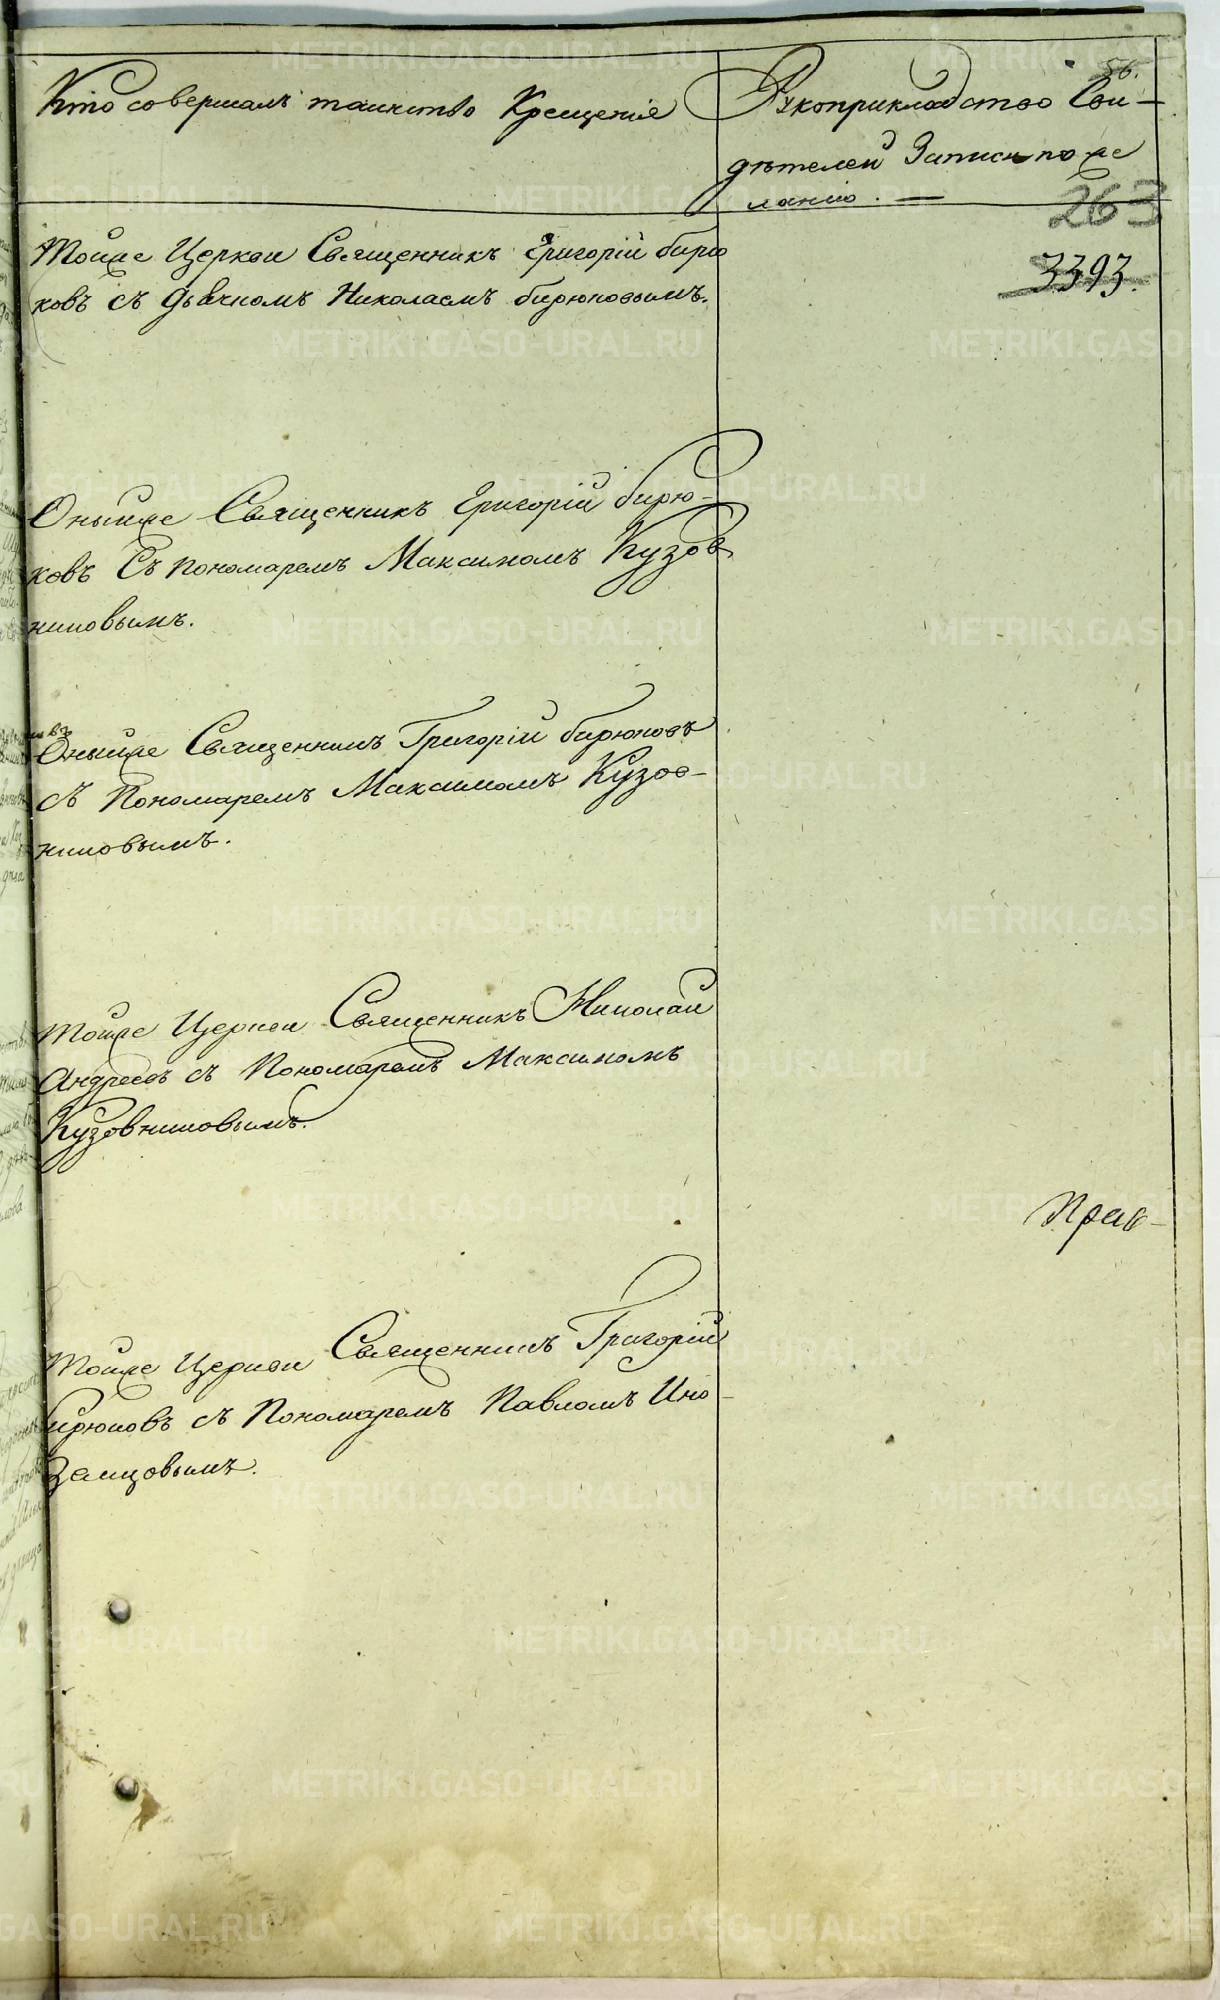 56.
Кто совершалъ таинство Крещенія
Рукоприкладство Сви-
дѣтелей Записи по же
ланію. —
263
3393.
Тойже Церкви Священникъ Григорій бирю
ковъ съ дьячкомъ Николаемъ бирюковымъ.
Оныйже Священникъ Григорій бирю-
ковъ Съ пономаремъ Максимомъ Кузов
никовымъ.
Оныйже Священникъ Григорій бирюковъ
съ Пономаремъ Максимомъ Кузов-
никовымъ.
Тойже Церкви Священникъ Николай
Андреевъ съ Пономаремъ Максимомъ
Кузовниковымъ.
Прав-
Тойже Церкви Священникъ Григорій
бирюковъ съ Пономаремъ Павломъ Ино-
земцовымъ.
METRIKI.GASO-URAL.RU